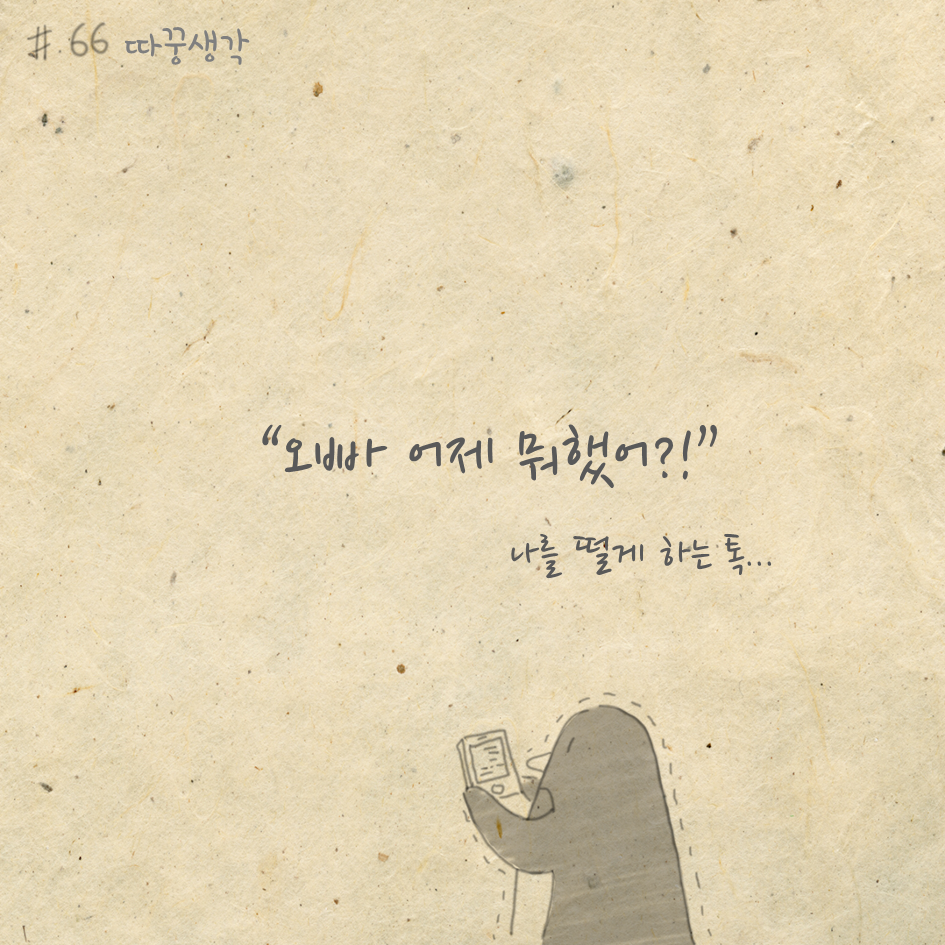 #.66 따꿍생각
“오빠 어제 뭐했어?!”
나를 떨게 하는 톡...